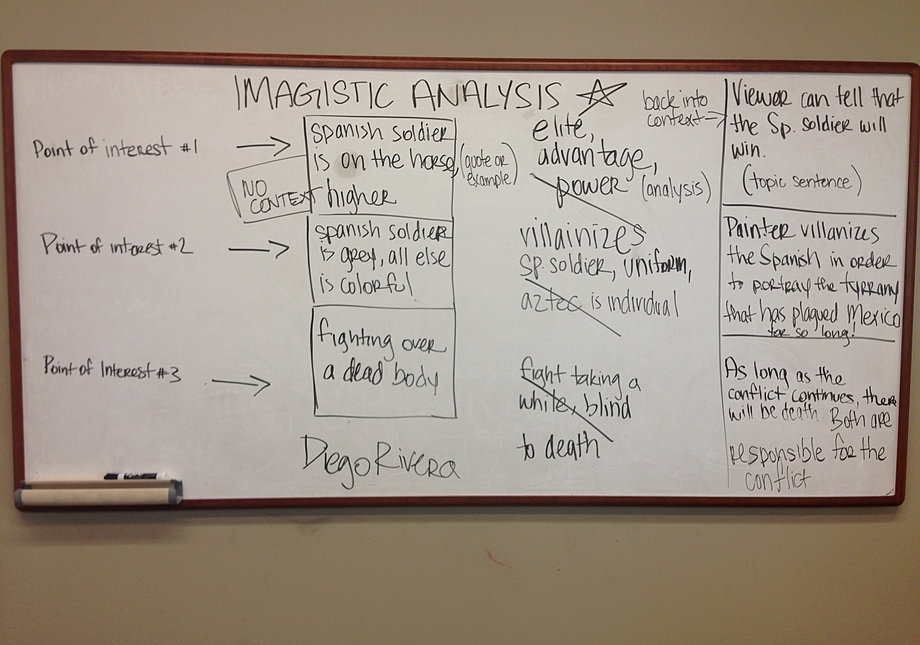 IMAGISTIC ANALYSIS
Point of interest #1
spanish soldier
is on the horse,
higher
(quote or
example)
NO
CONTEXT
elite,
advantage,
power (analysis)
back into
context
Viewer can tell that
the Sp. soldier will
win.
(topic sentence)
Point of interest #2
spanish soldier
is grey, all else
is colorful
villainizes
Sp. soldier, uniform,
aztec is individual
Painter villanizes
the Spanish in order
to portray the tyrrany
that has plaqued Mexico
for so long!
Point of Interest #3
fighting over
a dead body
fight taking a
while, blind
to death
As long as the
conflict continues, there
will be death. Both are
responsible for the
conflict
Diego Rivera